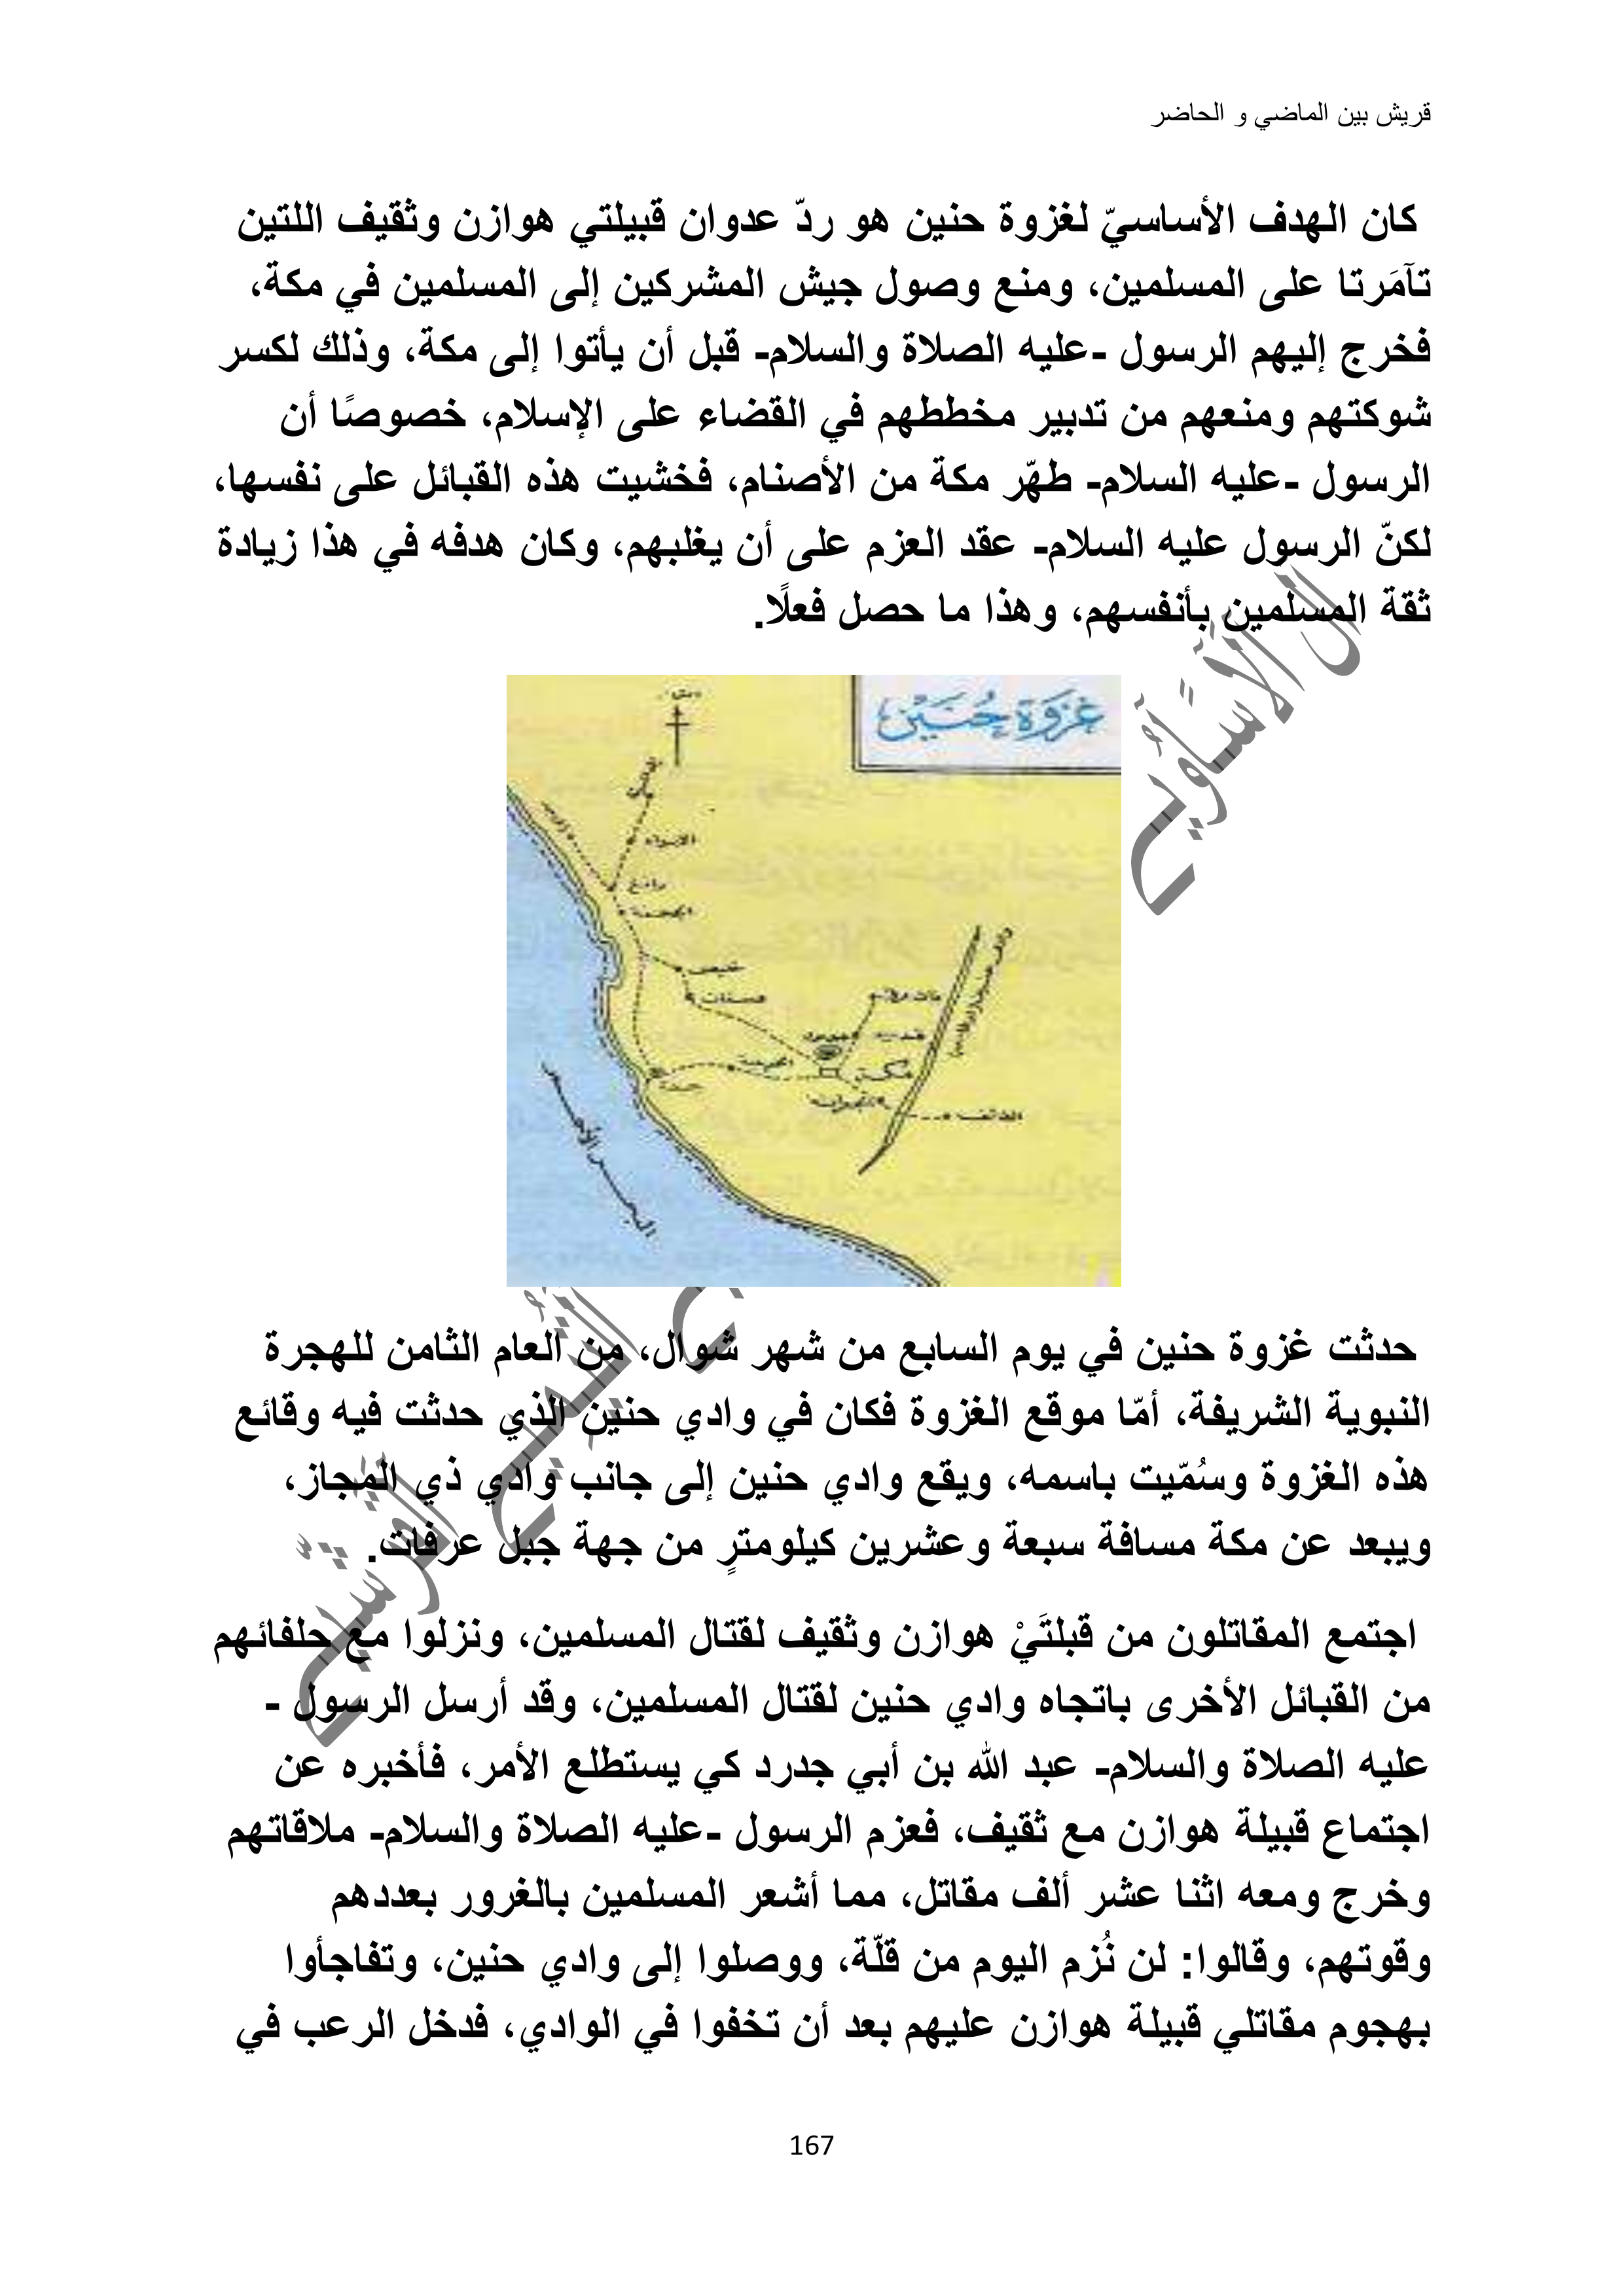 قريش بين الماضي و الحاضر
كان الهدف الأساسيّ لغزوة حنين هو ردّ عدوان قبيلتي هوازن وثقيف اللتين
تآمَرتا على المسلمين، ومنع وصول جيش المشركين إلى المسلمين في مكة،
فخرج إليهم الرسول -عليه الصلاة والسلام- قبل أن يأتوا إلى مكة، وذلك لكسر
شوكتهم ومنعهم من تدبير مخططهم في القضاء على الإسلام، خصوصًا أن
الرسول -عليه السلام- طهّر مكة من الأصنام، فخشيت هذه القبائل على نفسها،
لكنّ الرسول عليه السلام- عقد العزم على أن يغلبهم، وكان هدفه في هذا زيادة
ثقة المسلمين بأنفسهم، وهذا ما حصل فعلًا.
غزوة حُنَيْن
الأبواء
رابغ
الجحفة
عسفان
مكة
الطائف
البحر الأحمر
حدثت غزوة حنين في يوم السابع من شهر شوال، من العام الثامن للهجرة
النبوية الشريفة، أمّا موقع الغزوة فكان في وادي حنين الذي حدثت فيه وقائع
هذه الغزوة وسُمّيت باسمه، ويقع وادي حنين إلى جانب وادي ذي المجاز،
ويبعد عن مكة مسافة سبعة وعشرين كيلومترٍ من جهة جبل عرفات.
اجتمع المقاتلون من قبلتَيْ هوازن وثقيف لقتال المسلمين، ونزلوا مع حلفائهم
من القبائل الأخرى باتجاه وادي حنين لقتال المسلمين، وقد أرسل الرسول -
عليه الصلاة والسلام- عبد الله بن أبي جدرد كي يستطلع الأمر، فأخبره عن
اجتماع قبيلة هوازن مع ثقيف، فعزم الرسول -عليه الصلاة والسلام- ملاقاتهم
وخرج ومعه اثنا عشر ألف مقاتل، مما أشعر المسلمين بالغرور بعددهم
وقوتهم، وقالوا: لن نُزم اليوم من قلّة، ووصلوا إلى وادي حنين، وتفاجأوا
بهجوم مقاتلي قبيلة هوازن عليهم بعد أن تخفوا في الوادي، فدخل الرعب في
167